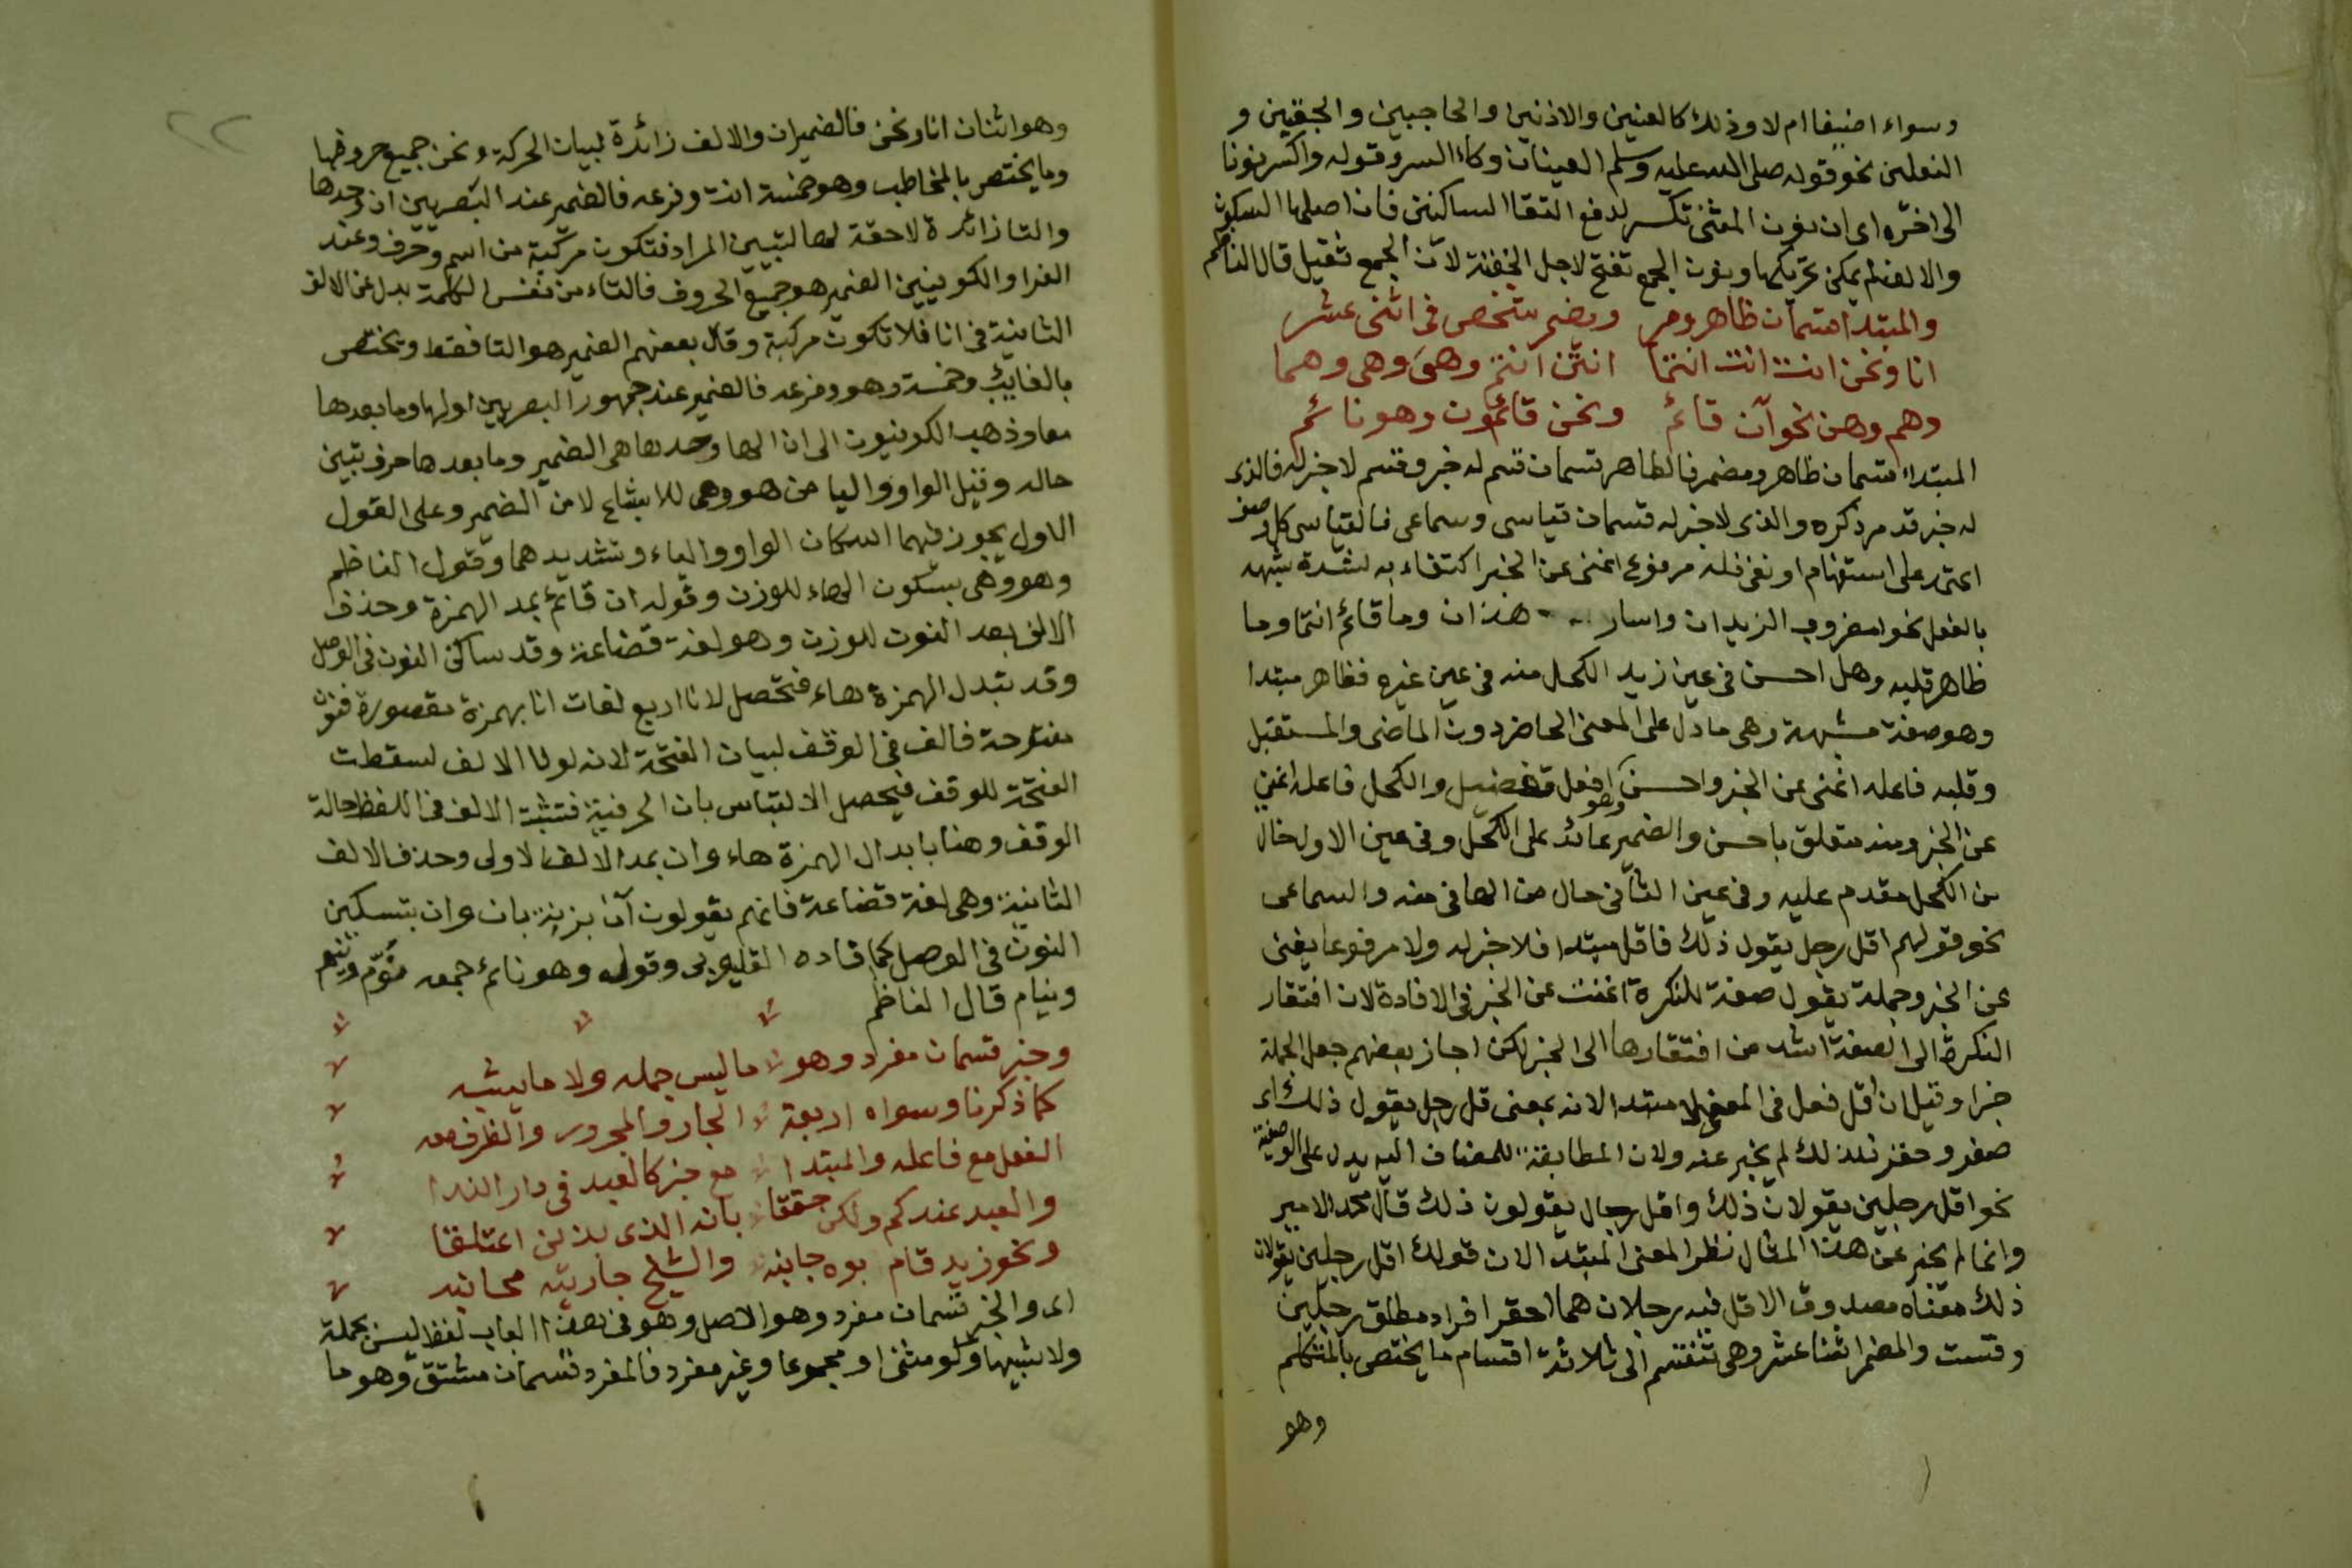 وسواء اضيفا ام لا وذلك كالعنين والاذنين والحاجبين والجفنين و
النعلين نحو قوله صلى الله عليه وسلم العينان وكاء السه وقوله واكسر نونا
الى اخره اى ان نون المثنى تكسر لدفع التقا الساكنين فان اصلها السكون
والالف لم يمكن تحريكها ونون الجمع تفتح لاجل الخفة لان الجمع ثقيل قال الناظم
والمبتدا قسمان ظاهر ومر ومضمر شخص فى اثنى عشر
انا ونحن انت انت انتما انتن انتم وهى وهى وهما
وهم وهن نحو آن قائم ونحن قائمون وهو نائم
المبتداء قسمان ظاهر ومضمر فالظاهر قسمان قسم له خبر وقسم لا خبر له فالذى
له خبر قد مر ذكره والذى لا خبر له قسمان قياسى وسماعى فالقياسى كل وصف
اعتمد على استفهام او نفى فله مرفوع اغنى عن الخبر اكتفاء به لشدة شبهه
بالفعل نحو امضروب الزيدان واسار هذان وما قائم انتما وما
ظاهر قلبه وهل احسن فى عين زيد الكحل منه فى عين غيره فظاهر مبتدا
وهو صفة مشبهة وهى ما دل على المعنى الحاضر دون الماضى والمستقبل
وقلبه فاعله اغنى عن الخبر واحسن افعل تفضيل والكحل فاعله اغنى
عن الخبر ومنه متعلق باحسن والضمير عائد على الكحل وفى عين الاول حال
من الكحل مقدم عليه وفى عين الثانى حال من الها فى منه والسماعى
نحو قولهم اقل رجل يقول ذلك فاقل مبتدا فلا خبر له ولا مرفوعا يغنى
عن الخبر وجملة يقول صفة للنكرة اغنت عن الخبر فى الافادة لان افتقار
النكرة الى الصفة اشد من افتقارها الى الخبر لكن اجاز بعضهم جعل الجملة
خبرا وقيل ان اقل فعل فى المعنى لا مبتدا لانه بمعنى قل رجل يقول ذلك اى
صغر وحقر فلذلك لم يخبر عنه ولان المطابقة للمضاف اليه يدل على الوصفية
نحو اقل رجلين يقولان ذلك واقل رجال يقولون ذلك قال محمد الامير
وانما لم يخبر عن هذا المثال نظرا لمعنى المبتدا لان قولك اقل رجلين يقولان
ذلك معناه مصدوق الاقل فيه رجلان هما احقر افراد مطلق رجلين
وقست والمضمر اثنا عشر وهى تنقسم الى ثلاثة اقسام ما يختص بالمتكلم
وهو
٢٢
وهو اثنان انا ونحن فالضمير ان والالف زائدة لبيان الحركة ونحن جميع حروفها
وما يختص بالمخاطب وهو خمسة انت وفرعه فالضمير عند البصريين ان وحدها
والتا زائدة لاحقة لها لتبيين المراد فتكون مركبة من اسم وحرف وعند
الفرا والكوفيين الضمير هو جميع الحروف فالتاء من نفس الكلمة بدل عن الالف
الثانية فى انا فلا تكون مركبة وقال بعضهم الضمير هو التا فقط ويختص
بالغايب وخمسة وهو وفرعه فالضمير عند جمهور البصريين اولها وما بعدها
معا وذهب الكوفيون الى ان الها وحدها هى الضمير وما بعدها حرف تبين
حاله وقيل الواو واليا من هو وهى للاشباع لا من الضمير وعلى القول
الاول يجوز فيهما اسكان الواو والياء وتشديدهما وقول الناظم
وهو وهى بسكون الهاء للوزن وقوله ان قائم بمد الهمزة وحذف
الالف بعد النون للوزن وهو لغة قضاعة وقد ساكن النون فى الوصل
وقد تبدل الهمزة هاء فتحصل لانا اربع لغات انا بهمزة مقصورة فنون
مفتوحة فالف فى الوقف لبيان الفتحة لانه لولا الالف لسقطت
الفتحة للوقف فيحصل الالتباس بان الحرفية فتثبت الالف فى اللفظ حالة
الوقف وهنا بابدال الهمزة هاء وان بمد الالف الاولى وحذف الالف
الثانية وهى لغة قضاعة فانهم يقولون آن بزنة بان وان بتسكين
النون فى الوصل كما افاده القليوبى وقوله وهو نائم جمعه نوم ونيم
ونيام قال الناظم
وخبر قسمان مفرد وهو ما ليس جمله ولا ما يشبه
كما ذكرنا وسواه اربعة الجار والمجرور والظرف معه
الفعل مع فاعله والمبتدا مع خبر كالعبد فى دار الندا
والعبد عندكم ولكن حققا بانه الذى بذلن اعتلقا
ونحو زيد قام بوه جانبه والشيخ جاريته محانيه
اى والخبر قسمان مفرد وهو الاصل وهو فى هذا الباب لفظ ليس بجملة
ولا شبيها ولو مثنى او مجموعا وغير مفرد فالمفرد قسمان مشتق وهو ما